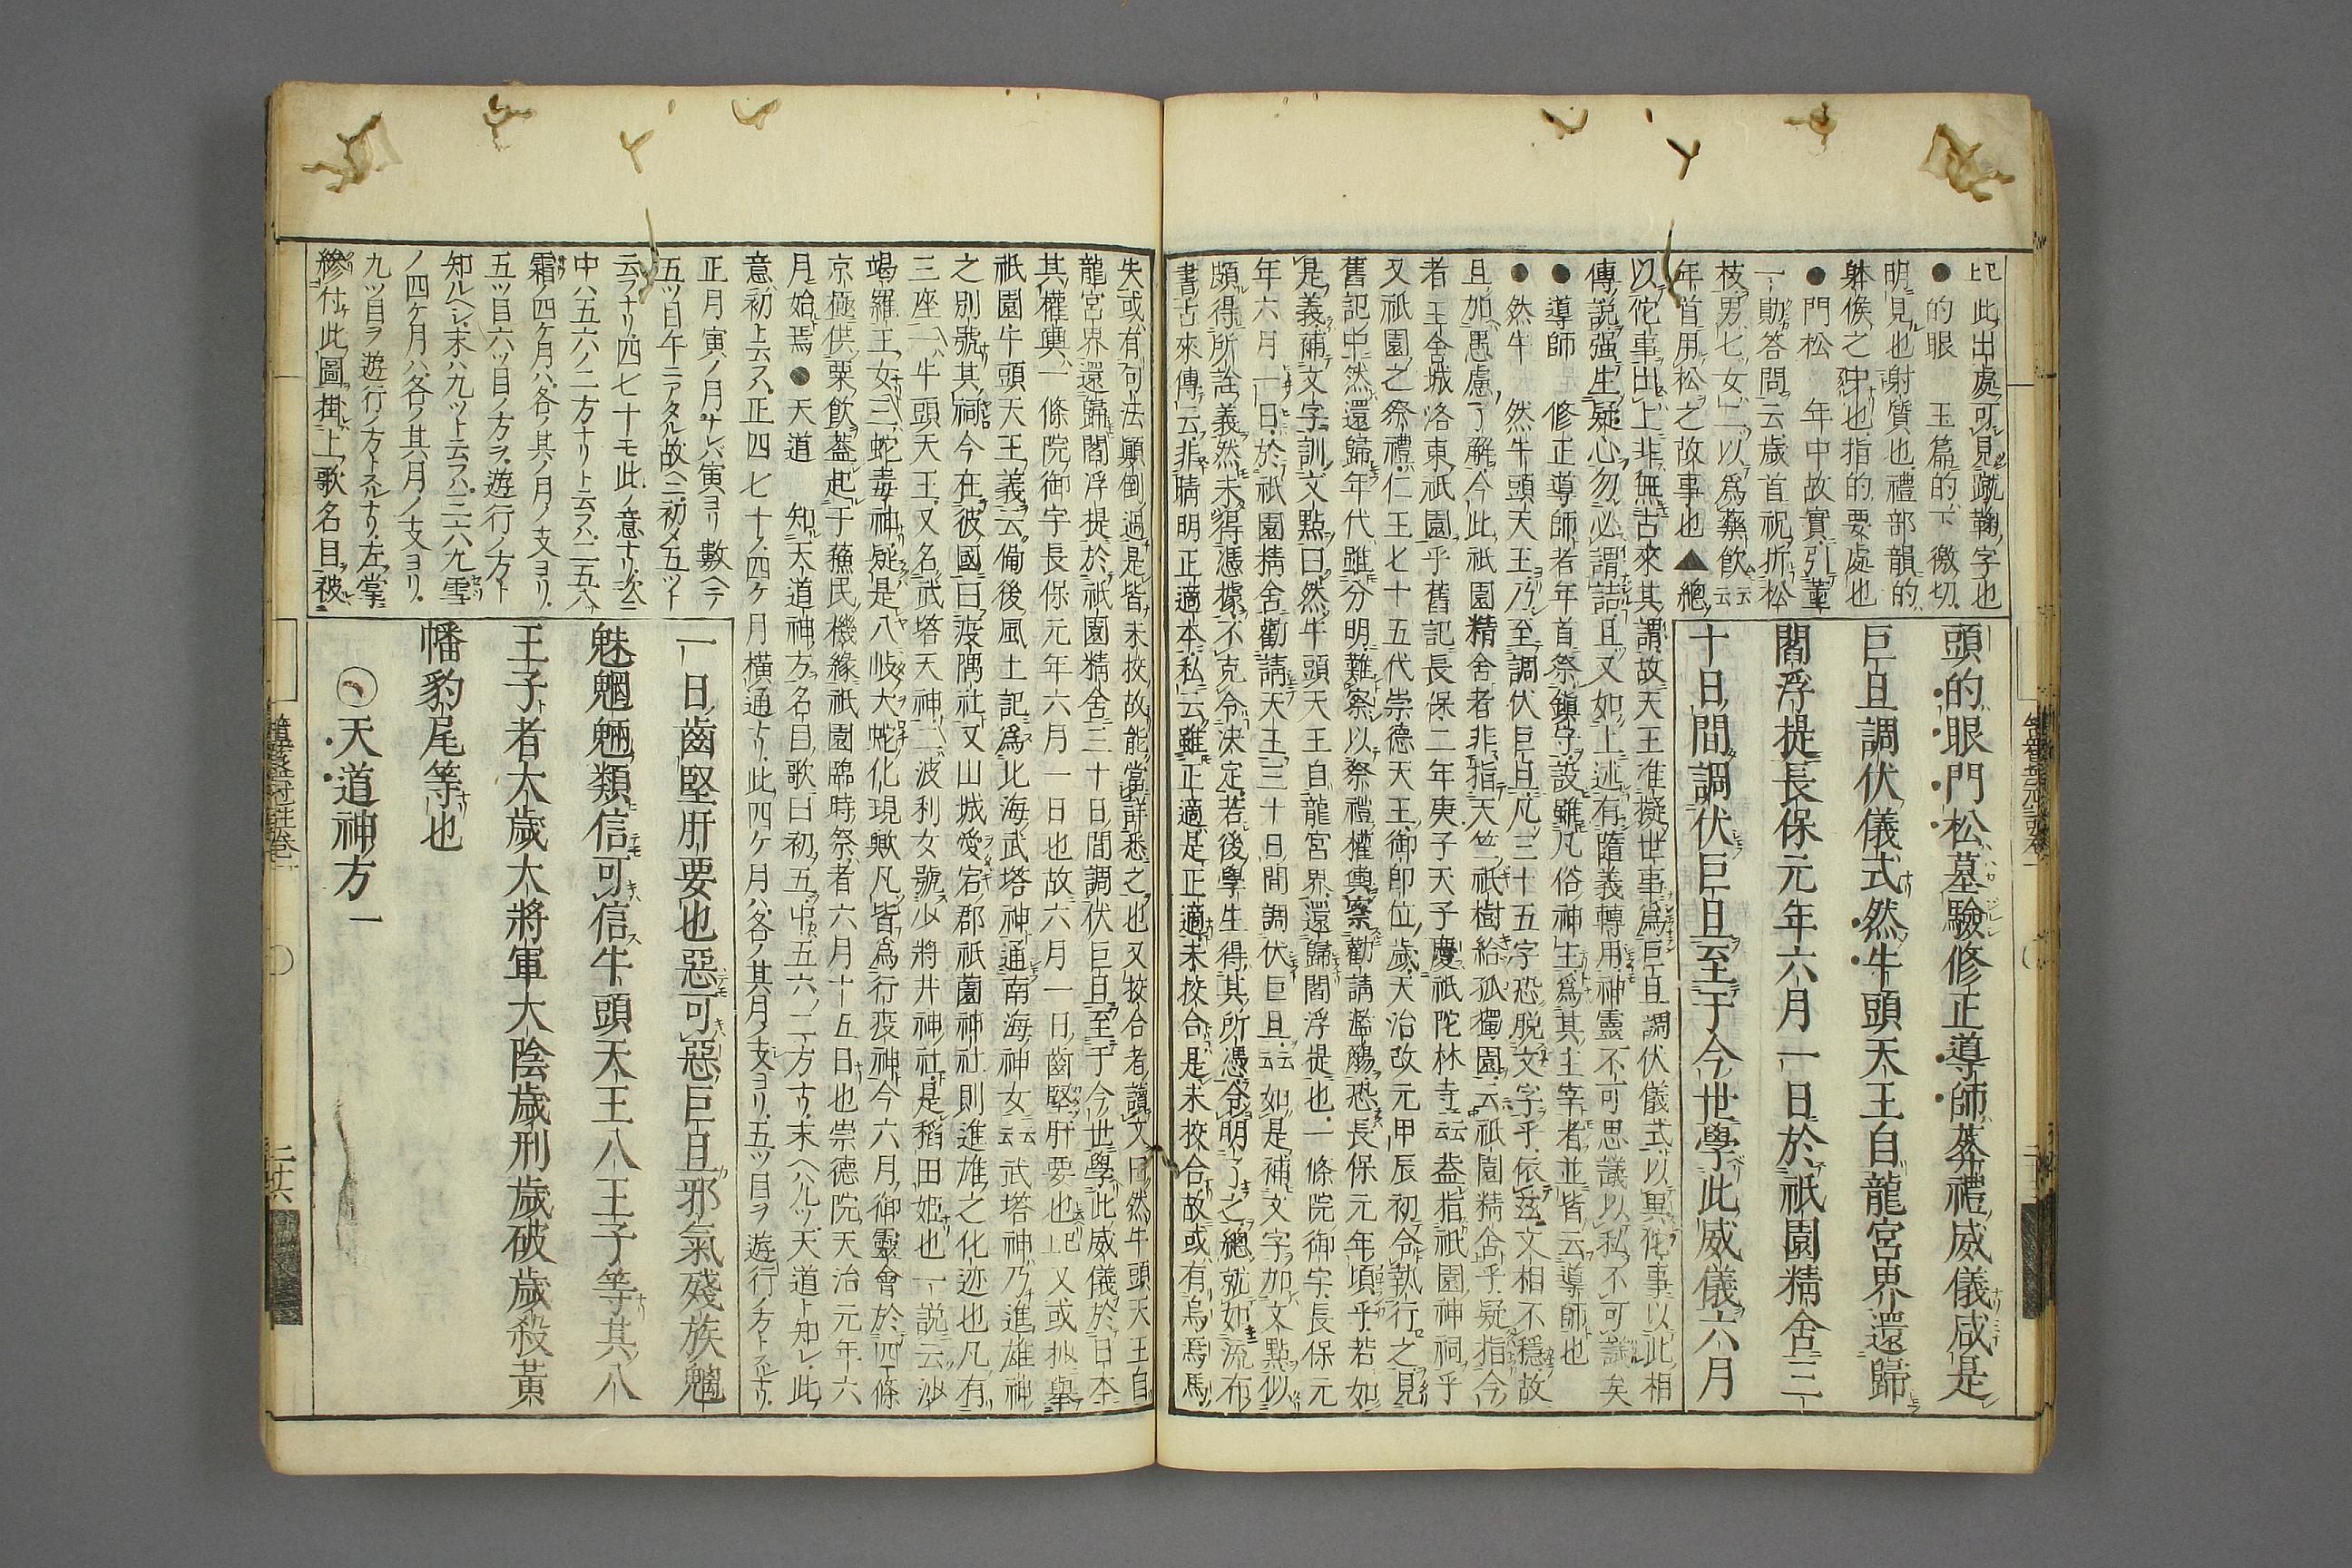 頭的眼門松墓驗修正導師葬禮威儀咸是
巨旦調伏儀式然牛頭天王自龍宮界還歸
閻浮提長保元年六月一日於祇園精舍三
十日間調伏巨旦至于今世學此威儀六月
此出處可見蹴鞠字也
●的眼 玉篇的下 徼切
明見也射質也禮部韻的
躰候之中也指的要處也
●門松 年中故實引董
一勛答問云歲首祝折松
枝男七女二以爲藥飲云云
年首用松之故事也▲總
以佗事出上非無古來其謂故天王准擬世事爲巨旦調伏儀式以異佗事以此相
傳說强生疑心勿必謂詰且又如上述有隨義轉用神靈不可思議以私不可議矣
●導師 修正導師者年首祭鎮守設雖凡俗神生爲其主宰者並皆云導師也
●然牛 然牛頭天王乃至調伏巨旦凡三十五字恐脫文字乎依茲文相不穩故
且加愚慮了解今此祇園精舍者非指天竺祇樹給孤獨園云祇園精舍乎疑指今
者王舍城洛東祇園乎舊記長保二年庚子天子慶祇陀林寺云云蓋指祇園神祠乎
又祇園之祭禮仁王七十五代崇德天王御即位歲天治改元甲辰初令執行之見
舊記中然還歸年代雖分明難察以祭禮權輿案勸請濫觴恐長保元年頃乎若如
是義補文字訓文點曰然牛頭天王自龍宮界還歸閻浮提也一條院御宇長保元
年六月一日於祇園精舍勸請天王三十日間調伏巨旦云云如是補文字加文點似
頗得所詮義然未得憑據不克令決定若後學生得其所憑令明了之總就如流布
書古來傳云非晴明正適本私云雖正適是正適未挍合是未挍合故或有烏焉馬
失或有句法顚倒過是皆未挍故能當詳悉之也又挍合者讀文曰然牛頭天王自
龍宮界還歸閻浮提於祇園精舍三十日間調伏巨旦至于今世學此威儀於日本
其權輿一條院御宇長保元年六月一日也故六月一日齒堅肝要也
祇園牛頭天王義云備後風土記爲北海武塔神通南海神女云云武塔神乃進雄神
之別號其祠今在彼國曰疫隅社又山城愛宕郡祇薗神社則進雄之化迹也凡有
三座一八牛頭天王又名武塔天神二波利女號少將井神社是稻田姬也一說云沙
竭羅王女三蛇毒神疑是八岐大蛇化現歟凡皆爲行疫神今六月御靈會於四條
京極供粟飮蓋起于蘓民機緣祇園臨時祭者六月十五日也崇德院天治元年六
月始焉●天道 知天道神方名目歌曰初五中五六二方ナリ末ヘハ九ツ天道ト知レ此
意初上云ス正四七十ノ四ケ月橫通ナリ此四ケ月ハ各ノ其月ノ支ヨリ五ツ目ヲ遊行ノ方トスルナリ
正月寅ノ月ナレバ寅ヨリ數ヘテ
五ツ目午ニアタル故ヘニ初メ五ツト
云フナリ四七十モ此ノ意ナリ次ニ
中ハ五六ノ二方ナリト云フハ二五八
霜ノ四ケ月ハ各ノ其ノ月ノ支ヨリ
五ツ目六ツ目ノ方ヲ遊行ノ方ト
知ルヘシ末ハ九ツト云フハ三六九雪
ノ四ケ月ハ各ノ其月ノ支ヨリ
九ツ目ヲ遊行ノ方トスルナリ左掌
縿仕此圖掛上歌名目被
一日齒堅肝要也惡可惡巨旦邪氣殘族魑
魅魍魎類信可信牛頭天王八王子等其八
王子者太歲大將軍大陰歲刑歲破歲殺黃
幡豹尾等也
㊀天道神方一